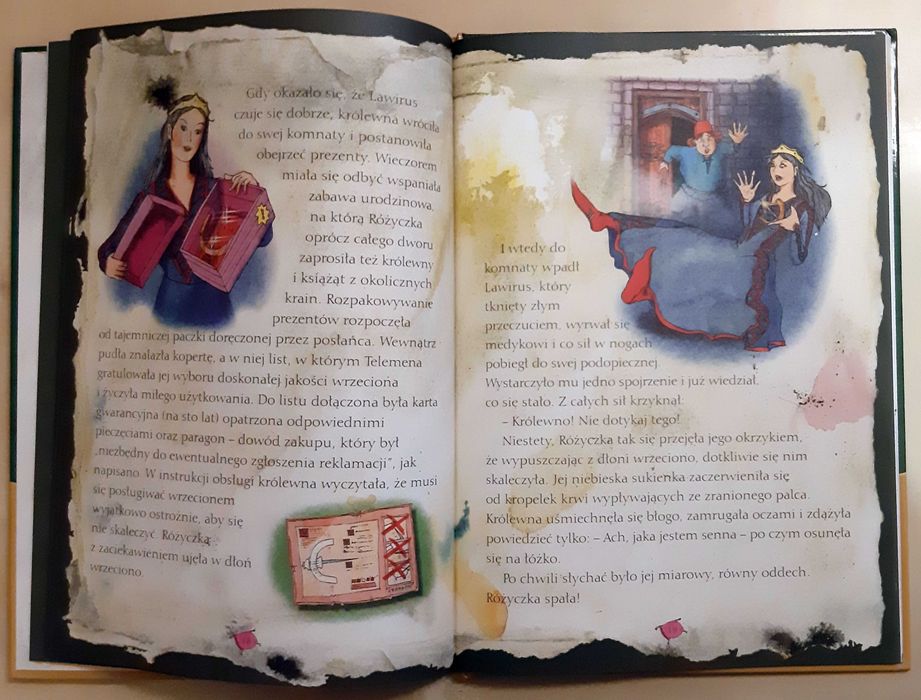 Gdy okazało się, że Lawirus
czuje się dobrze, królewna wróciła
do swej komnaty i postanowiła
obejrzeć prezenty. Wieczorem
miała się odbyć wspaniała
zabawa urodzinowa,
na którą Różyczka
oprócz całego dworu
zaprosiła też królewny
i książąt z okolicznych
krain. Rozpakowywanie
prezentów rozpoczęła
od tajemniczej paczki doręczonej przez posłańca. Wewnątrz
pudła znalazła kopertę, a w niej list, w którym Telemena
gratulowała jej wyboru doskonałej jakości wrzeciona
i życzyła miłego użytkowania. Do listu dołączona była karta
gwarancyjna (na sto lat) opatrzona odpowiednimi
pieczęciami oraz paragon – dowód zakupu, który był
„niezbędny do ewentualnego zgłoszenia reklamacji”, jak
napisano. W instrukcji obsługi królewna wyczytała, że musi
się posługiwać wrzecionem
wyjątkowo ostrożnie, aby się
nie skaleczyć. Różyczka
z zaciekawieniem ujęła w dłoń
wrzeciono.
I wtedy do
komnaty wpadł
Lawirus, który
tknięty złym
przeczuciem, wyrwał się
medykowi i co sił w nogach
pobiegł do swej podopiecznej.
Wystarczyło mu jedno spojrzenie i już wiedział,
co się stało. Z całych sił krzyknął:
– Królewno! Nie dotykaj tego!
Niestety, Różyczka tak się przejęła jego okrzykiem,
że wypuszczając z dłoni wrzeciono, dotkliwie się nim
skaleczyła. Jej niebieska sukienka zaczerwieniła się
od kropelek krwi wypływających ze zranionego palca.
Królewna uśmiechnęła się błogo, zamrugała oczami i zdążyła
powiedzieć tylko: – Ach, jaka jestem senna – po czym osunęła
się na łóżko.
Po chwili słychać było jej miarowy, równy oddech.
Różyczka spała!